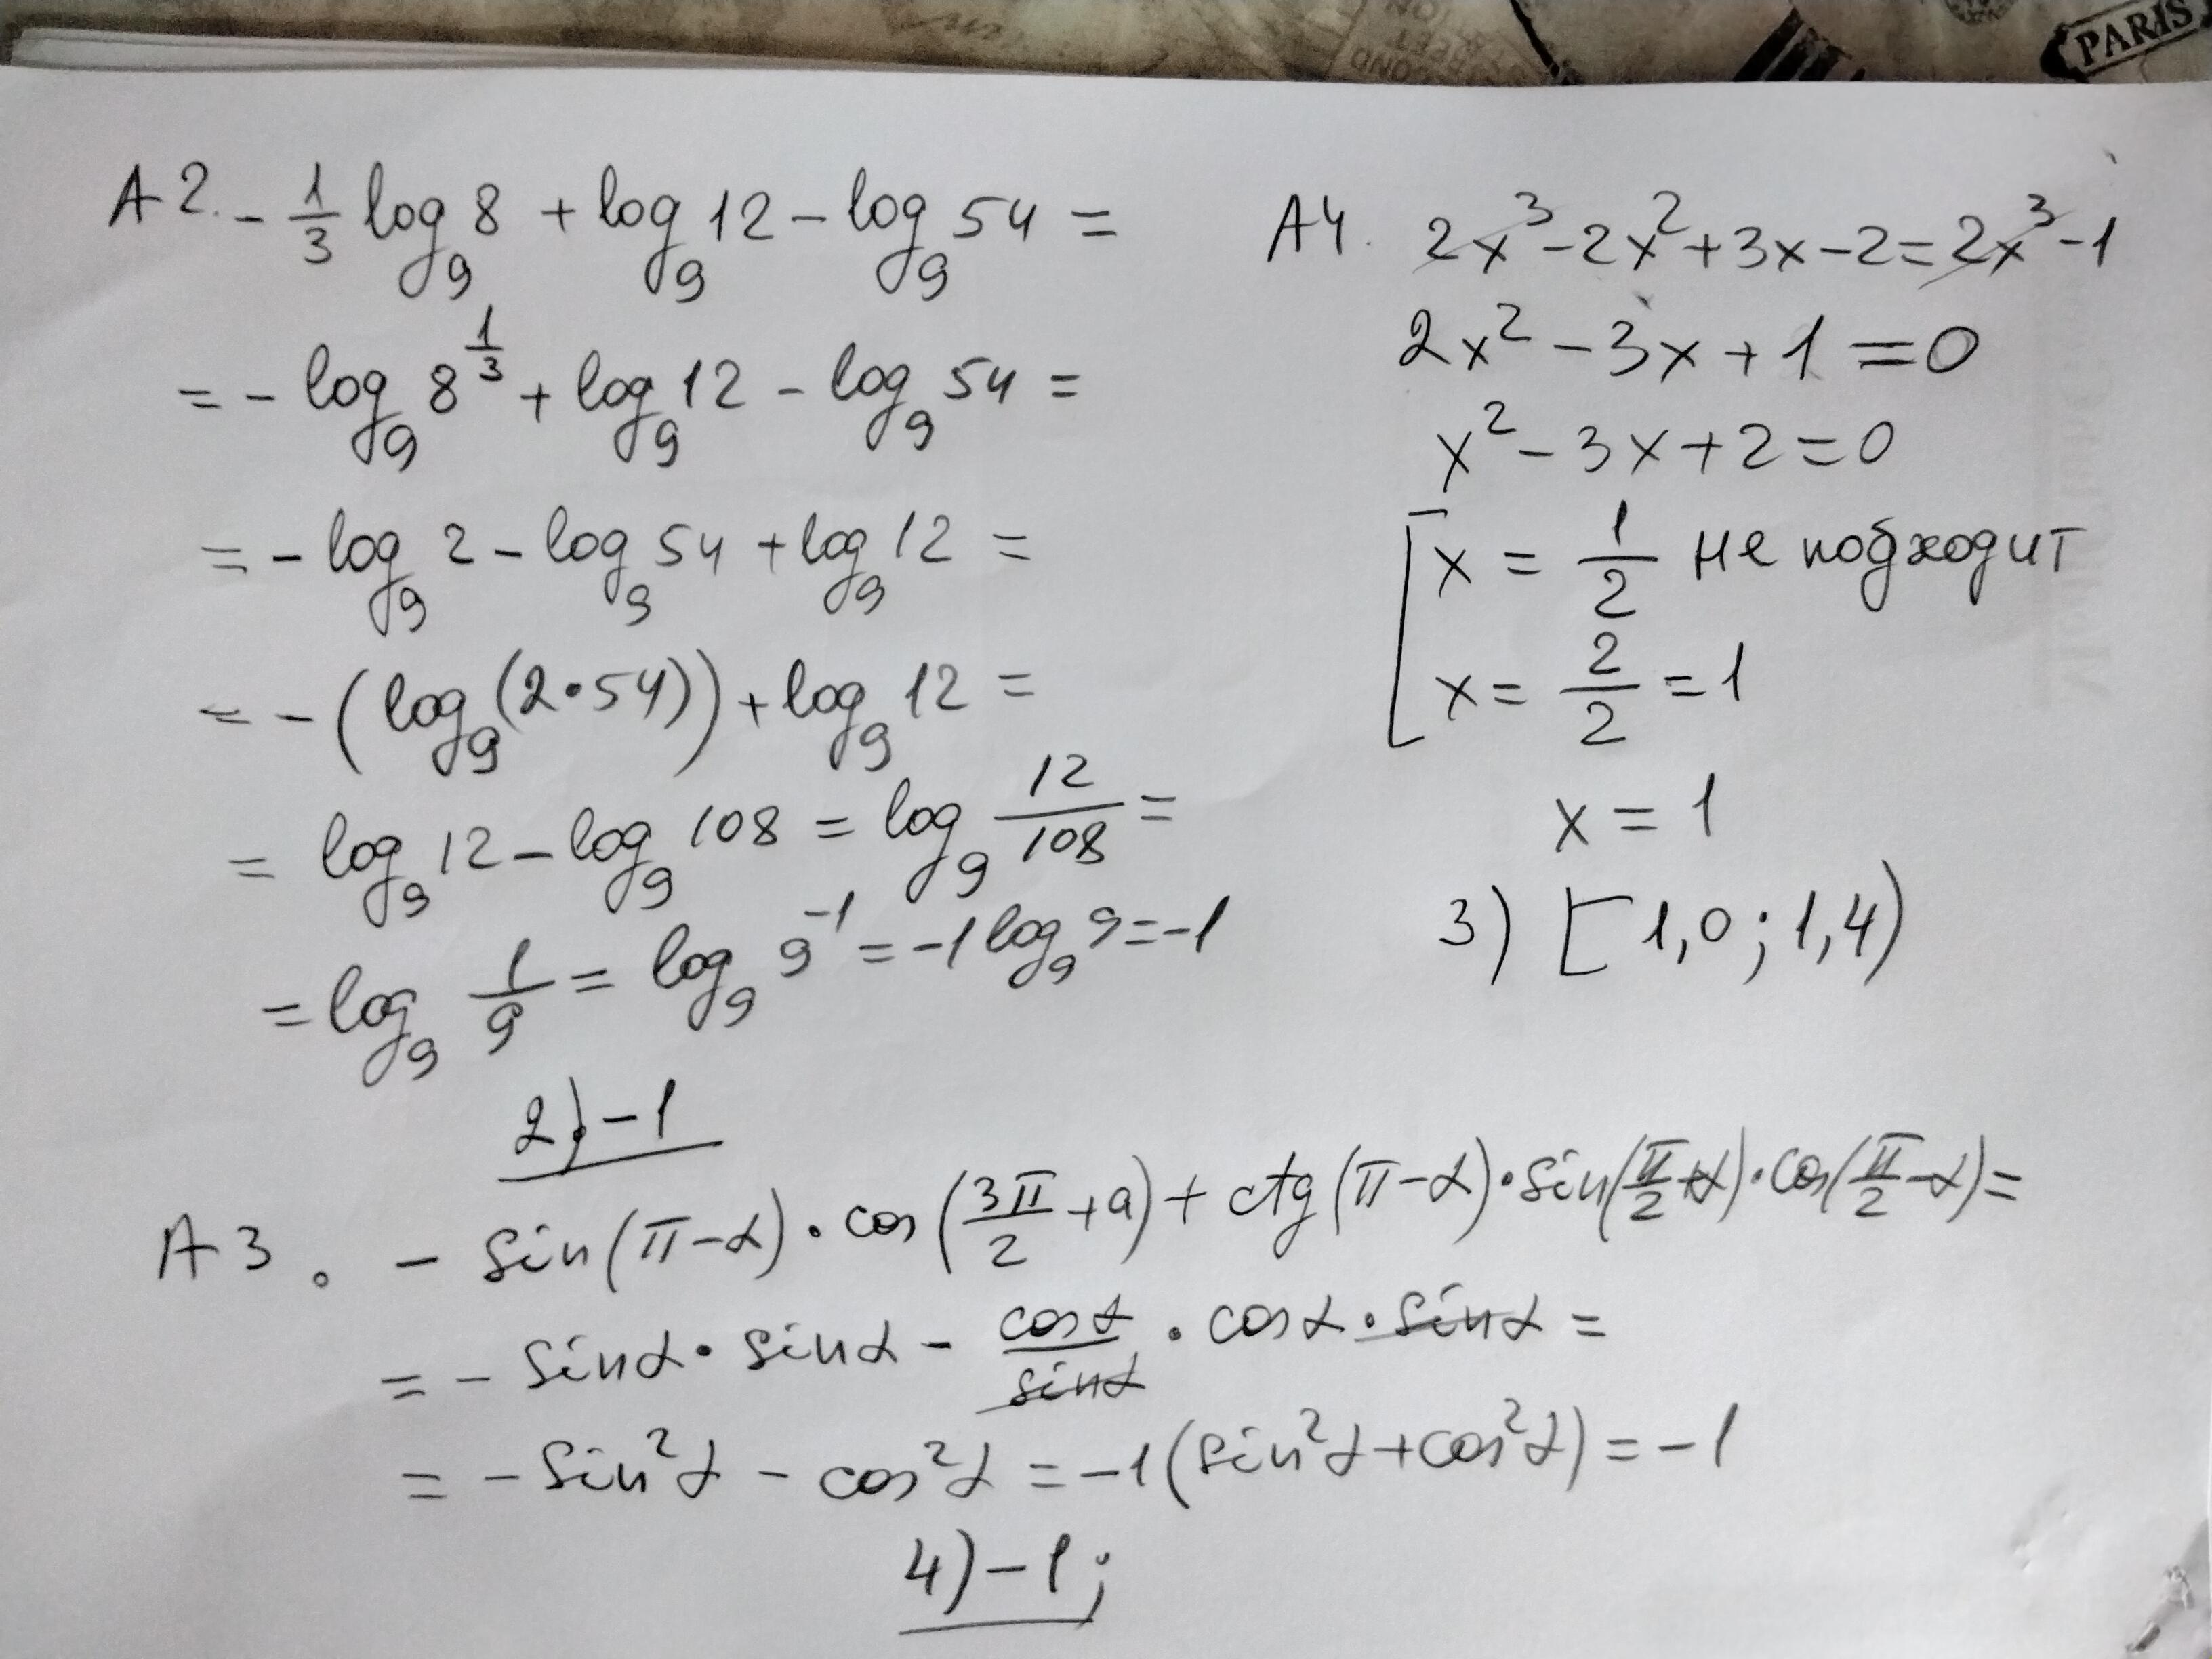 PARIS
A2. - 1/3 log₉ 8 + log₉ 12 - log₉ 54 =
= - log₉ 8^(1/3) + log₉ 12 - log₉ 54 =
= - log₉ 2 - log₉ 54 + log₉ 12 =
= - (log₉ (2•54)) + log₉ 12 =
= log₉ 12 - log₉ 108 = log₉ 12/108 =
= log₉ 1/9 = log₉ 9⁻¹ = -1 log₉ 9 = -1
2) -1
A4. 2x³ - 2x² + 3x - 2 = 2x³ - 1
2x² - 3x + 1 = 0
x² - 3x + 2 = 0
[ x = 1/2 не подходит
x = 2/2 = 1
x = 1
3) [1,0; 1,4)
A3. - sin(π-α) • cos(3π/2 + a) + ctg(π-α) • sin(π/2 + α) • cos(π/2 - α) =
= - sinα • sinα - cosα/sinα • cosα • sinα =
= - sin²α - cos²α = -1(sin²α + cos²α) = -1
4) -1;